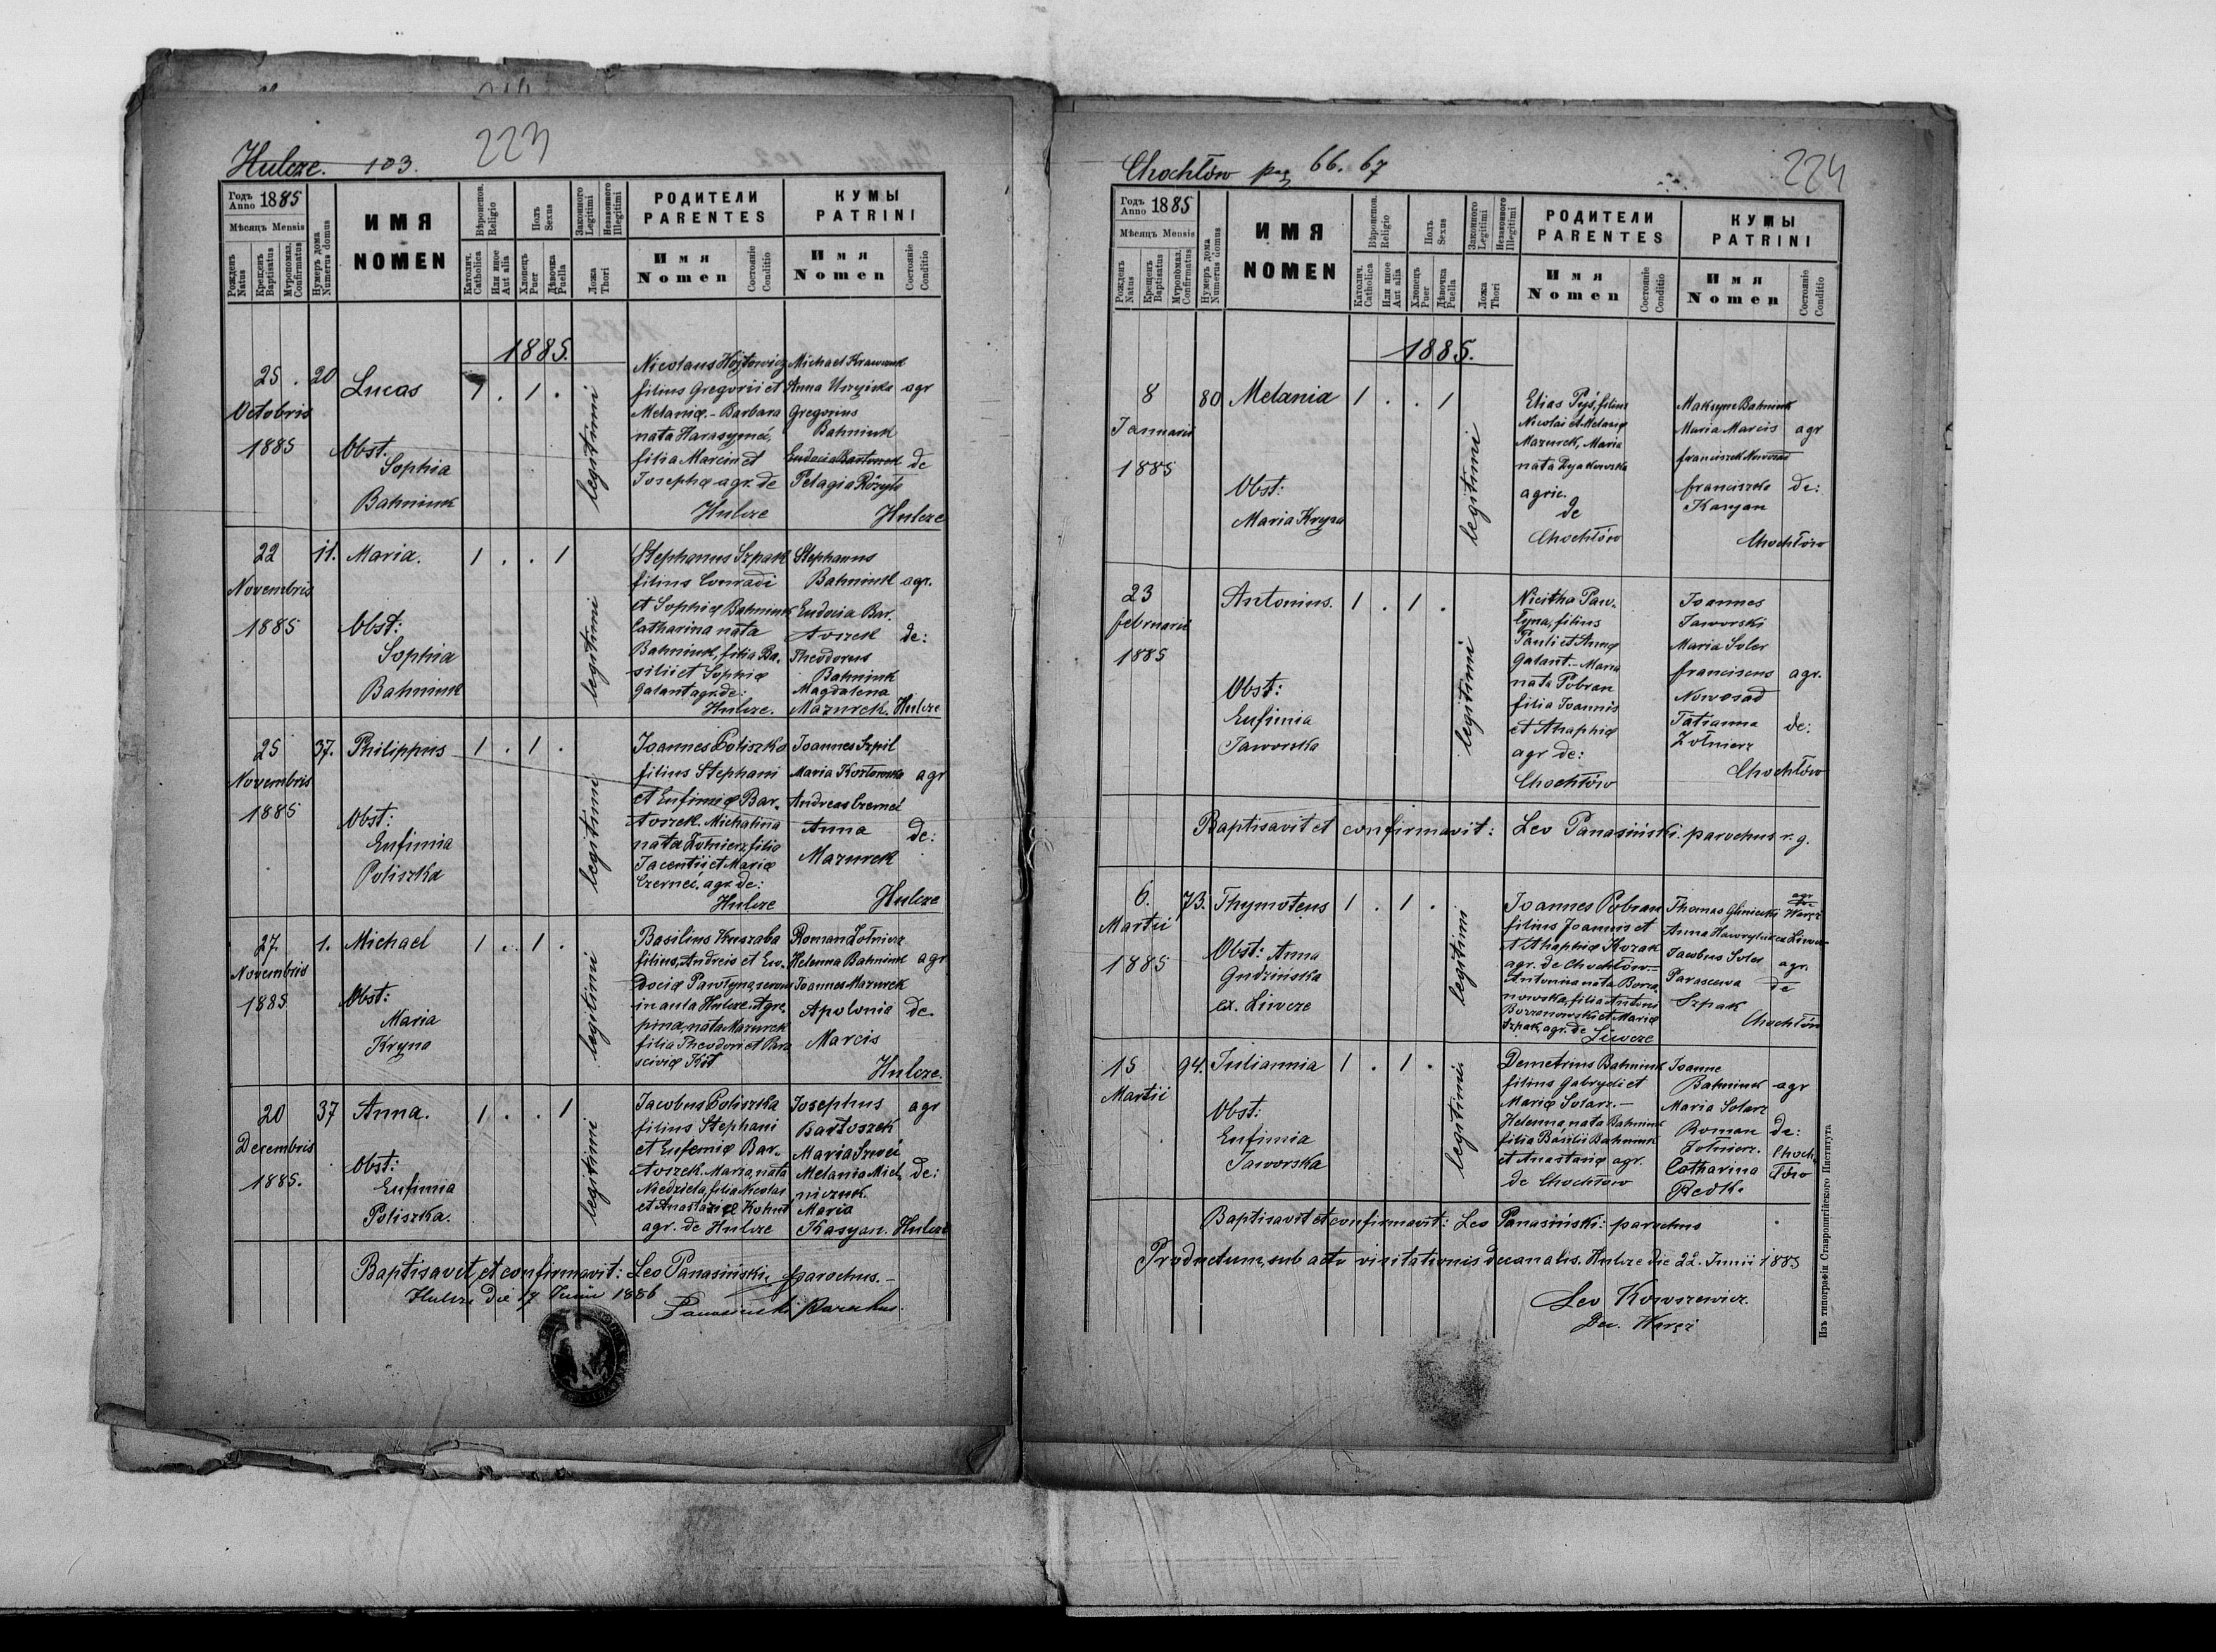 223
Hulcze. 103.
Годъ Anno 1885
Мѣсяцъ Mensis
Рожденъ Natus
Крещенъ Baptisatus
Мѵропомаз. Confirmatus
Нумеръ дома Numerus domus
ИМЯ
NOMEN
Вѣроисповѣд. Religio
Католич. Catholica
Или иное Aut alia
Полъ Sexus
Хлопецъ Puer
Дѣвочка Puella
Законного Legitimi
Незаконного Illegitimi
Ложа Thori
РОДИТЕЛИ
PARENTES
Имя
Nomen
Состояніе Conditio
КУМЫ
PATRINI
Имя
Nomen
Состояніе Conditio
1885.
25. 20
Octobris
1885
Lucas
Obst.
Sophia
Bahniuk
1 . 1 .
legitimi
Nicolaus Hojtowicz
filius Gregorii et
Melaniæ. - Barbara
nata Harasymeć,
filia Marcin et
Josephæ agr. de
Hulcze
Michael Krawczuk
Anna agr
Gregorius
Bahniuk
Eudocia Bartoszek de
Pelagia Rózyła
Hulcze
22 11.
Novembris
1885
Maria.
Obst:
Sophia
Bahniuk
1 . . 1
legitimi
Stephanus Szpak
filius Conradi
et Sophiæ Bahniuk
Catharina nata
Bahniuk, filia Ba-
silii et Sophiæ
Galant agr. de:
Hulcze.
Stephanus
Bahniuk agr.
Eudocia Bar-
toszek de:
Theodorus
Bahniuk
Magdalena
Mazurek. Hulcze
25 37.
Novembris
1885
Philippus
Obst:
Eufimia
Poliszka
1 . 1 .
legitimi
Joannes Poliszka
filius Stephani
et Eufimiæ Bar-
toszek. Michalina
nata Żołnierz, filia
Jacentii et Mariæ
Czerneć, agr. de:
Hulcze
Joannes Szpil
Maria Kozłowska agr
Andreas Czerneć
Anna de:
Mazurek
Hulcze
27. 1.
Novembris
1885
Michael
Obst:
Maria
Kryna
1 . 1 .
legitimi
Basilius Kuszaba
filius, Andreis et Eu-
dociæ Pawłyna, servus
in aula Hulcze. Agre-
pina, nata Mazurek
filia Theodori et Para
sciviæ Kot
Roman Żołnierz
Helenna Bahniuk agr
Joannes Mazurek
Apolonia de.
Marcis
Hulcze.
20 37
Decembris
1885.
Anna.
Obst:
Eufimia
Poliszka.
1 . . 1
legitimi
Jacobus Poliszka
filius Stephani
et Eufemiæ Bar-
toszek. Maria, nata
Niedziela, filia Nicolai
et Anastasiæ Kohut
agr. de Hulcze
Josephus agr
Bartoszek
Maria Szweć
Melania Mich- de:
niczuk.
Maria
Kasyan. Hulcze
Baptisavit et confirmavit: Leo Panasiński, parochus. -
Hulcze die 17 Junii 1886
Panasiński Parochus.
224
Chochłów pag 66. 67
Годъ Anno 1885
Мѣсяцъ Mensis
Рожденъ Natus
Крещенъ Baptisatus
Мѵропомаз. Confirmatus
Нумеръ дома Numerus domus
ИМЯ
NOMEN
Вѣроисповѣд. Religio
Католич. Catholica
Или иное Aut alia
Полъ Sexus
Хлопецъ Puer
Дѣвочка Puella
Законного Legitimi
Незаконного Illegitimi
Ложа Thori
РОДИТЕЛИ
PARENTES
Имя
Nomen
Состояніе Conditio
КУМЫ
PATRINI
Имя
Nomen
Состояніе Conditio
1885.
8 80
Januarii
1885
Melania
Obst:
Maria Kryna
1 . . 1
legitimi
Elias Pyś, filius
Nicolai et Melaniæ
Mazurek, Maria
nata Dyakowska
agric.
de
Chochłów
Maksym Bahniuk
Maria Marcis agr
franciszek Nowosad
franciszka de:
Kasyan
Chochłów
23
februarii
1885
Antonius.
Obst:
Eufimia
Jaworska
1 . 1 .
legitimi
Nicitha Paw-
łyna, filius
Pauli et Annæ
Galant. - Maria
nata Pobran
filia Joannis
et Ahaphiæ
agr de:
Chochłów
Joannes
Jaworski
Maria Soler
franciscus agr.
Nowosad
Tatianna de:
Żołnierz
Chochłów
Baptisavit et confirmavit: Leo Panasiński. parochus r. g.
6. 73.
Martii
1885
Thymoteus
Obst: Anna
Gudzińska
ex. Liwcze
1 . 1 .
legitimi
Joannes Pobran
filius Joannis et
Ahaphiæ Kozak
agr. de Chochłów. -
Antonina nata Borza-
nowska, filia Antonii
Borzonowski et Mariæ
Szpak, agr. de
Liwcze
Thomas Gliniecki agr de Waręż
Anna ex Liwcze
Jacobus Soler agr.
Parasceva de
Szpak
Chochłów
15 94.
Martii
Juliannia
Obst:
Eufimia
Jaworska
1 . 1 .
legitimi
Demetrius Bahniuk
filius Gabryeli et
Mariæ Solarz. -
Helenna, nata Bahniuk
filia Basilii Bahniuk
et Anastasiæ agr.
de Chochłów
Joanne
Bahniuk agr
Maria Solarz
Roman de:
Żołnierz. Choch-
Catharina łów
Redk.
Baptisavit et confirmavit: Leo Panasiński: parochus
Productum, sub actu visitationis decanalis. Hulcze die 22. Junii 1885
Leo Kowszewicz.
Dec. Waręż
Изъ типографіи Ставропигійского Института